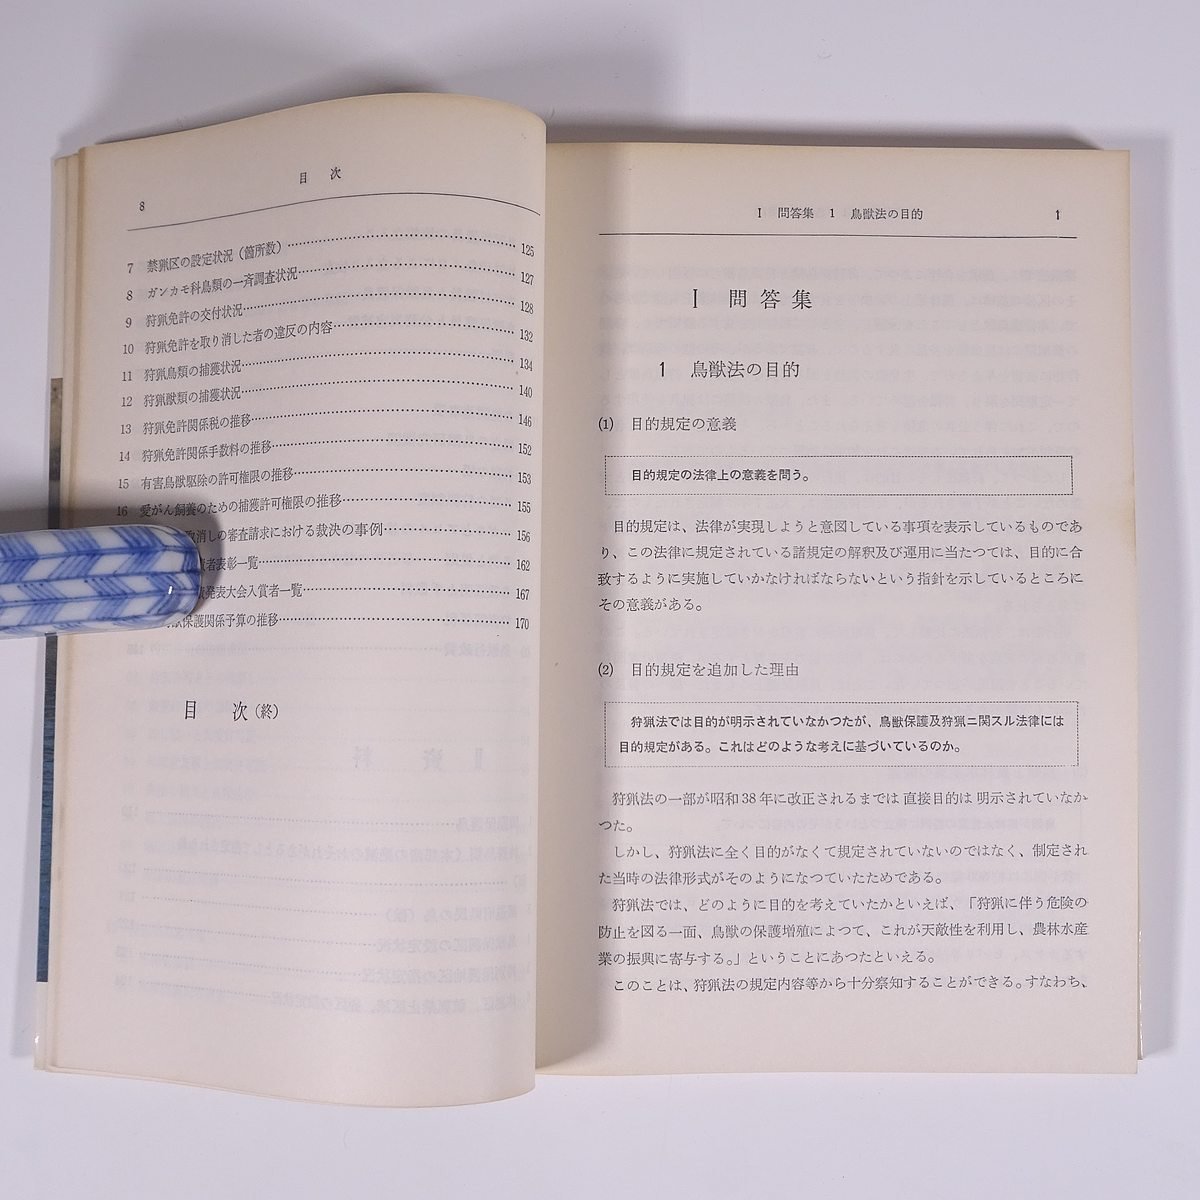 目　次
8
7　禁猟区の設定状況（箇所数）……125
8　ガンカモ科鳥類の一斉調査状況……127
9　狩猟免許の交付状況……128
10　狩猟免許を取り消した者の違反の内容……132
11　狩猟鳥類の捕獲状況……134
12　狩猟獣類の捕獲状況……140
13　狩猟免許関係税の推移……146
14　狩猟免許関係手数料の推移……152
15　有害鳥獣駆除の許可権限の推移……153
16　愛がん飼養のための捕獲許可権限の推移……155
取消しの審査請求における裁決の事例……156
者表彰一覧……162
発表大会入賞者一覧……167
保護関係予算の推移……170
目　次（終）
Ⅰ　問答集　1　鳥獣法の目的　1
Ⅰ　問答集
1　鳥獣法の目的
(1)　目的規定の意義
目的規定の法律上の意義を問う。
目的規定は、法律が実現しようと意図している事項を表示しているものであ
り、この法律に規定されている諸規定の解釈及び運用に当たつては、目的に合
致するように実施していかなければならないという指針を示しているところに
その意義がある。
(2)　目的規定を追加した理由
狩猟法では目的が明示されていなかつたが、鳥獣保護及狩猟ニ関スル法律には
目的規定がある。これはどのような考えに基づいているのか。
狩猟法の一部が昭和38年に改正されるまでは直接目的は明示されていなか
つた。
しかし、狩猟法に全く目的がなくて規定されていないのではなく、制定され
た当時の法律形式がそのようになつていたためである。
狩猟法では、どのように目的を考えていたかといえば、「狩猟に伴う危険の
防止を図る一面、鳥獣の保護増殖によつて、これが天敵性を利用し、農林水産
業の振興に寄与する。」ということにあつたといえる。
このことは、狩猟法の規定内容等から十分察知することができる。すなわち、